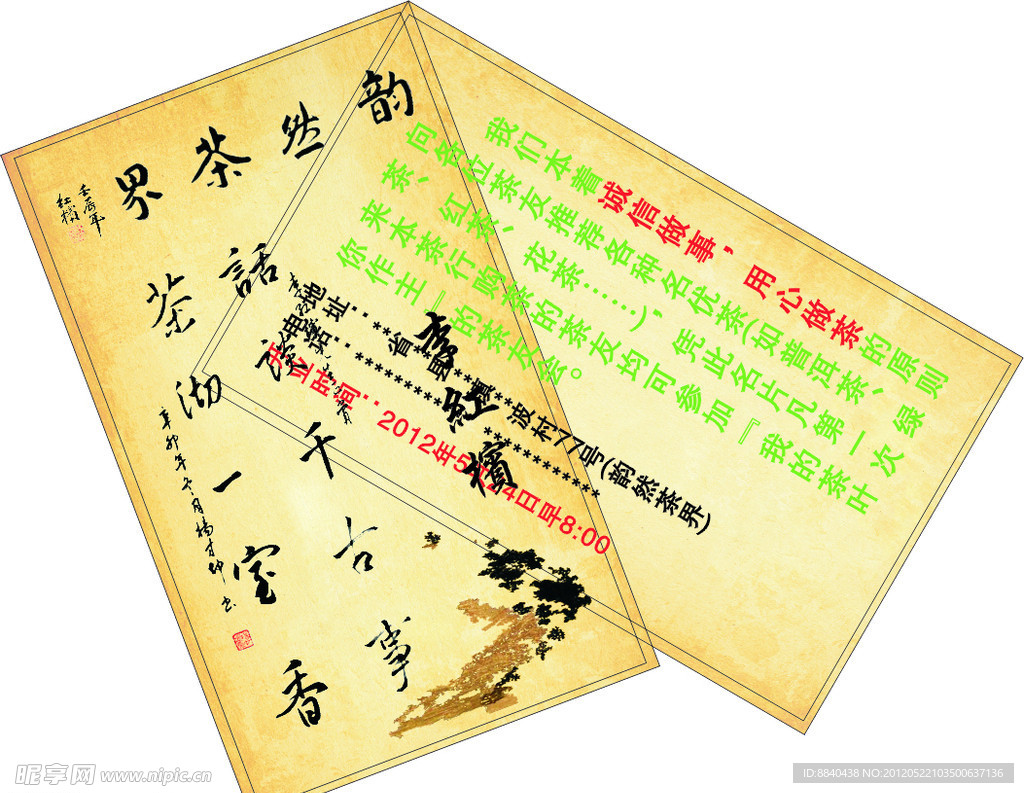 韵然茶界
壬辰年
红槟
茶沏一室香
話读千古事
辛卯年冬月杨才坤书
李红槟
我们本着诚信做事，用心做茶的原则
向各位茶友推荐各种名优茶(如普洱茶、绿
茶、红茶、花茶……)，凭此名片凡第一次
来本茶行购茶的茶友均可参加『我的茶叶
你作主』的茶友会。
地址：**省**县**镇**波村XX号(韵然茶界)
电话：********************
开业时间：2012年5月24日早8:00
昵享网 www.nipic.cn
ID:8840438 NO:20120522103500637136